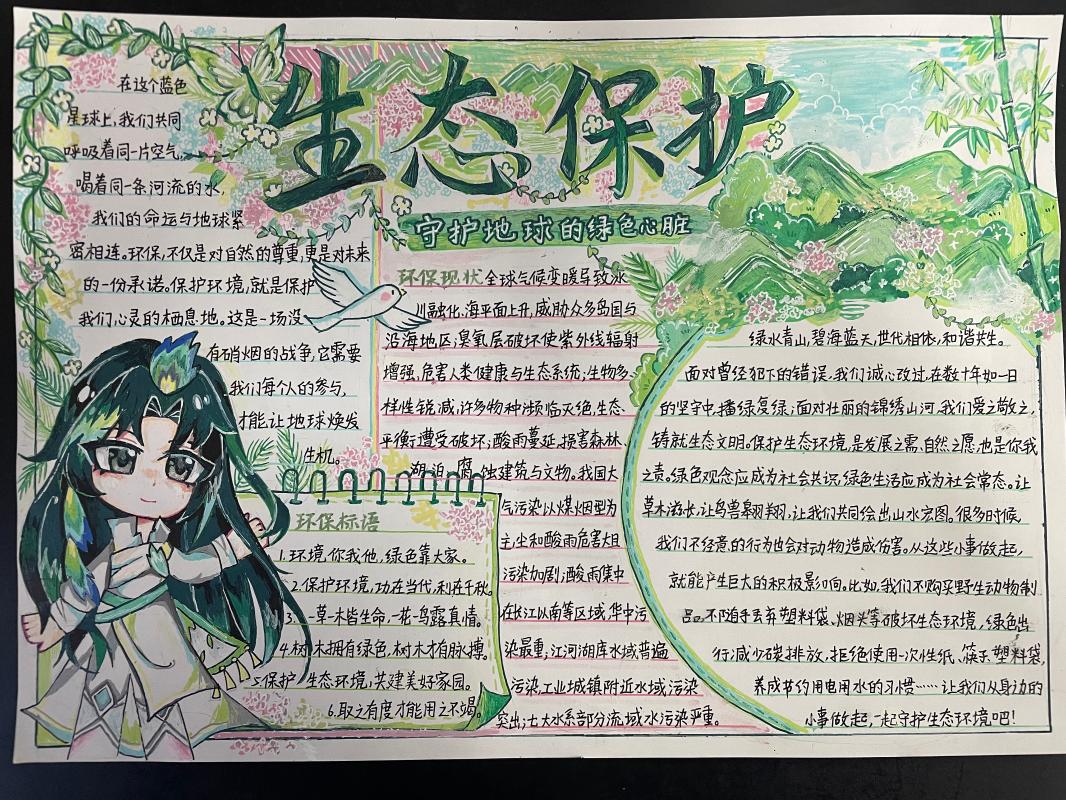 生态保护
守护地球的绿色心脏
在这个蓝色
星球上,我们共同
呼吸着同一片空气,
喝着同一条河流的水,
我们的命运与地球紧
密相连。环保,不仅是对自然的尊重,更是对未来
的一份承诺。保护环境,就是保护
我们心灵的栖息地。这是一场没
有硝烟的战争,它需要
我们每个人的参与,
才能让地球焕发
生机。
环保标语
1.环境,你我他,绿色靠大家。
2.保护环境,功在当代,利在千秋。
3.一草一木皆生命,一花一鸟露真情。
4.树木拥有绿色,树木才有脉搏。
5.保护生态环境,共建美好家园。
6.取之有度才能用之不竭。
环保现状 全球气候变暖导致冰
川融化,海平面上升,威胁众多岛国与
沿海地区;臭氧层破坏使紫外线辐射
增强,危害人类健康与生态系统;生物多
样性锐减,许多物种濒临灭绝,生态
平衡遭受破坏;酸雨蔓延,损害森林、
湖泊,腐蚀建筑与文物。我国大
气污染以煤烟型为
主,尘和酸雨危害大且
污染加剧;酸雨集中
在长江以南等区域,华中污
染最重;江河湖库水域普遍
污染,工业城镇附近水域污染
突出;七大水系部分流域水污染严重。
绿水青山,碧海蓝天,世代相依,和谐共生。
面对曾经犯下的错误,我们诚心改过,在数十年如一日
的坚守中,播绿复绿;面对壮丽的锦绣山河,我们爱之敬之,
铸就生态文明。保护生态环境,是发展之需,自然之愿,也是你我
之责。绿色观念应成为社会共识,绿色生活应成为社会常态。让
草木滋长,让鸟兽翱翔,让我们共同绘出山水宏图。很多时候,
我们不经意的行为也会对动物造成伤害。从这些小事做起,
就能产生巨大的积极影响。比如,我们不购买野生动物制
品。不随手丢弃塑料袋、烟头等破坏生态环境,绿色出
行,减少碳排放,拒绝使用一次性纸、筷子、塑料袋,
养成节约用电用水的习惯……让我们从身边的
小事做起,一起守护生态环境吧!